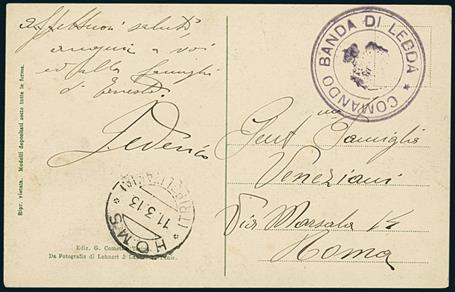 Affettuosi saluti
auguri a voi
ed alla famiglia
di Ernesto.
Federico
COMANDO BANDA DI LEBDA *
Gent ma Famiglia
Veneziani
Via Marsala
Roma
HOMS
11.3.13
Ripr. vietata. Modelli depositati sotto tutte le forme.
Ediz. G.
Da Fotografie di Lehnert &